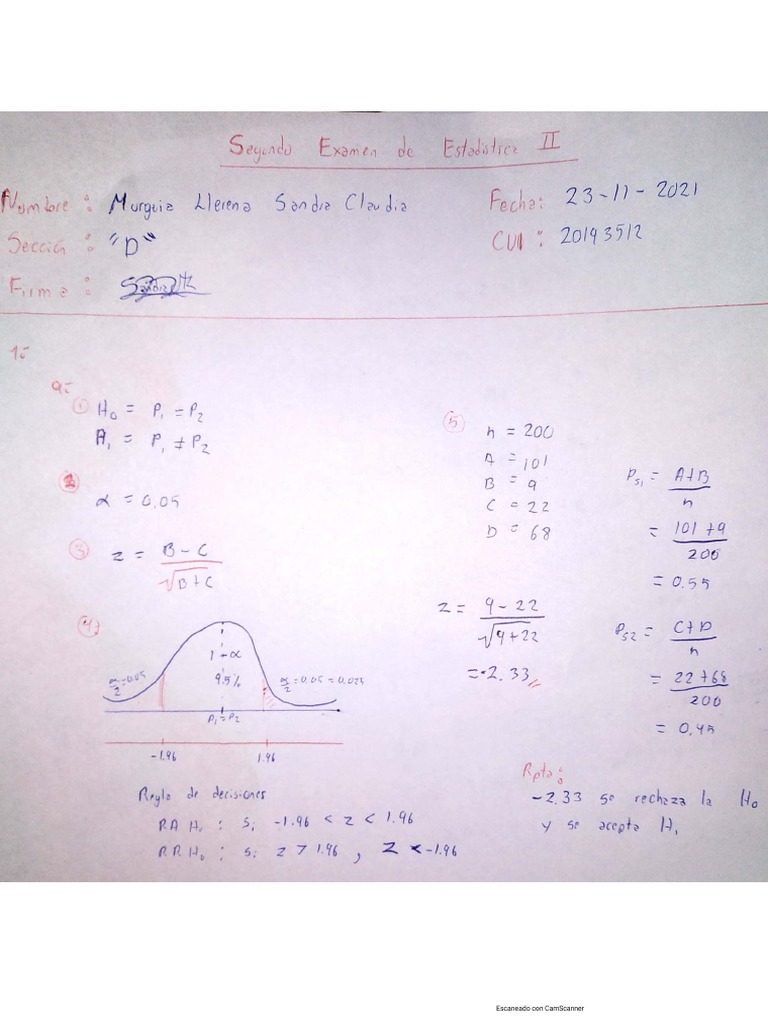 Segundo Examen de Estadística II
Nombre : Murguia Llerena Sandra Claudia
Fecha: 23-11-2021
Sección : "D"
CUI : 20193512
Firma :
1.-
a.-
① H₀ = P₁ = P₂
A₁ = P₁ ≠ P₂
2
α = 0,05
③ z = B - C / √B+C
4
1 - α
95%
α/2 = 0.05
α/2 = 0,05 = 0,025
P₁ = P₂
-1.96 1.96
Regla de decisiones
R.A H₀ : Si -1.96 < z < 1.96
R.R H₀ : Si z > 1.96 , z < -1.96
⑤ n = 200
A = 101
B = 9
C = 22
D = 68
z = 9 - 22 / √9+22
= -2.33
Ps₁ = A+B / n
= 101 + 9 / 200
= 0.55
Ps2 = C+D / n
= 22 + 68 / 200
= 0,45
Rpta:
-2.33 se rechaza la H₀
y se acepta H₁
Escaneado con CamScanner